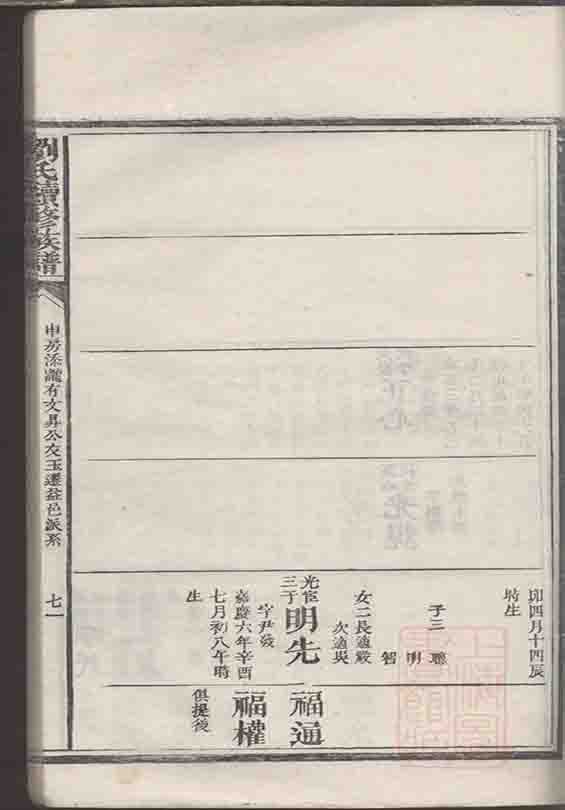 劉氏續修族譜
申房添瀧有文昇公交玉遷益邑派系
七一
卯四月十四辰
時生
子三
聰
明
智
女二長適嚴
次適吳
光宦
三子
明先
字尹發
嘉慶六年辛酉
七月初八午時
生
福通
福權
俱提後